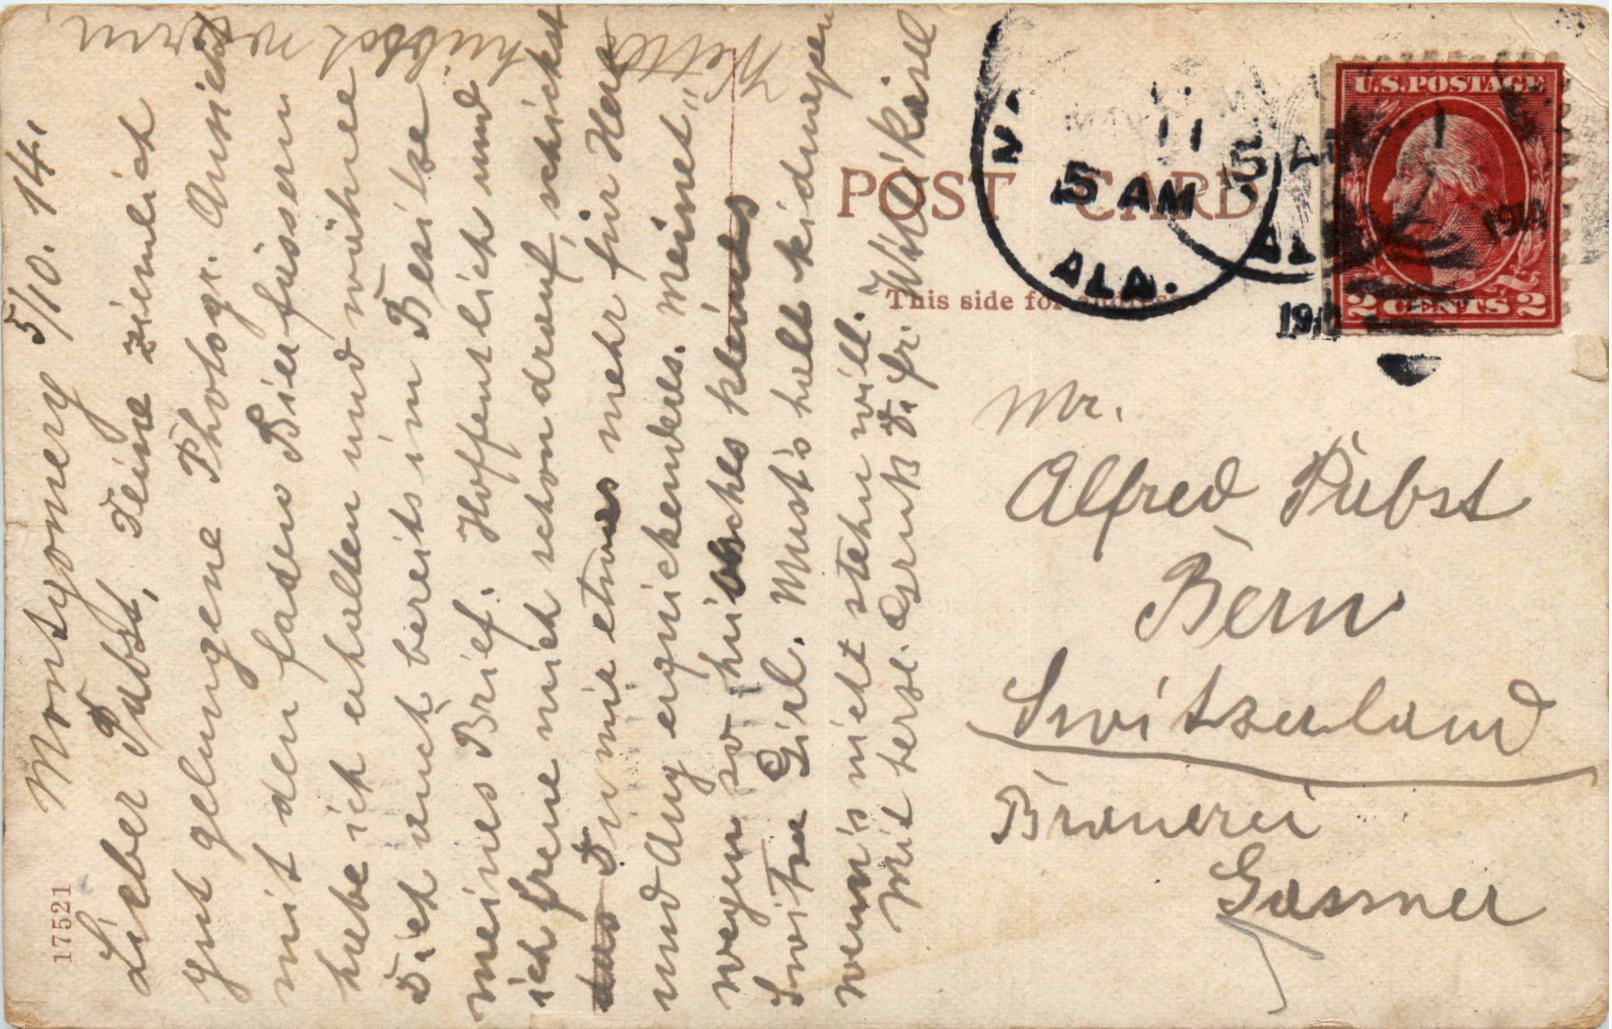 Montgomery 5/10. 14.
Lieber Pabst, Deine ziemlich
gut gelungene Photogr. Ansicht
mit den faden Bierfässern
habe ich erhalten und wähne
Dich auch bereits im Besitze
meines Brief. Hoffentlich und
ich freue mich schon drauf, schickst
Du mir etwas mehr für Herz
und Aug erquickenderes. Meinet"
wegen so hübsches kleines
Switzer Girl. Must's halt kidnapen
wenn's nicht stehn will.
Mit herzl. Gruß Dr. fr. Willi Käsell
Wetter hübsch warm
17521
POST CARD
This side for address
11
5 AM
ALA.
5 AM
1914
1914
U.S. POSTAGE
2 CENTS 2
Mr.
Alfred Pabst
Bern
Switzerland
Brauerei
Gassner